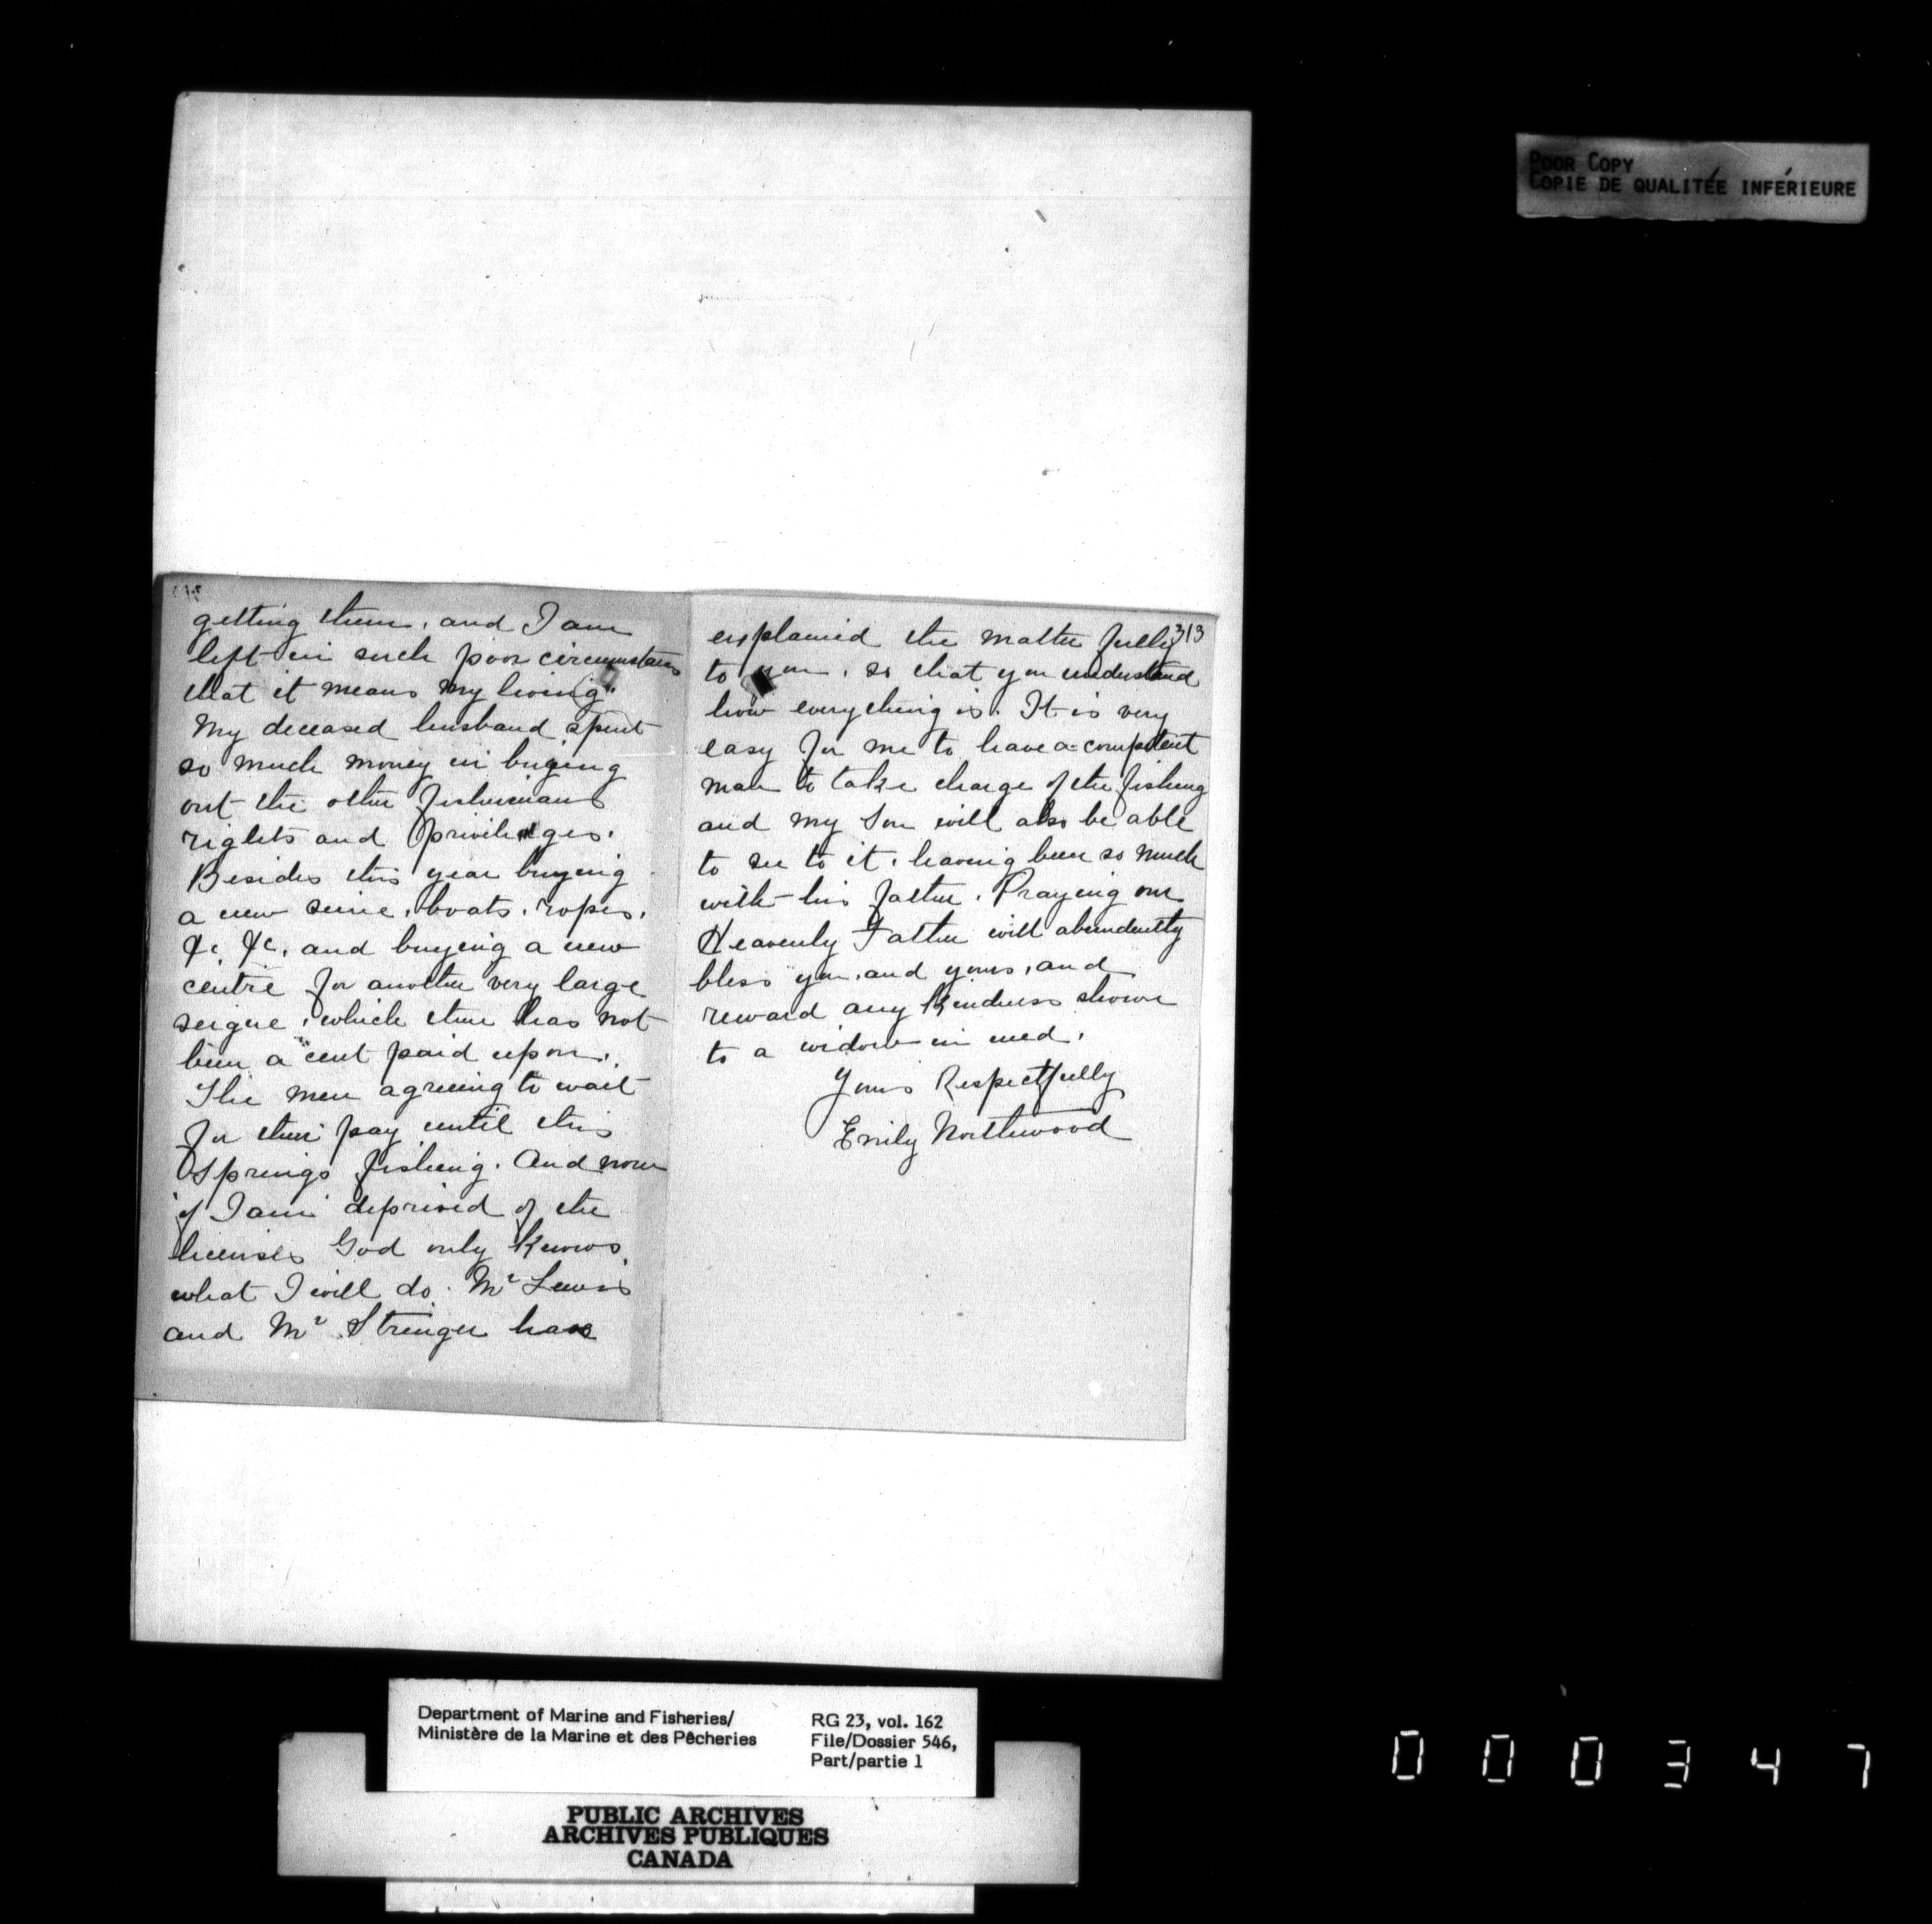 getting them, and I am
left in such poor circumstances
that it means my living.
My deceased husband spent
so much money in buying
out the other fishermans
rights and privileges.
Besides this year buying
a new seine, boats, ropes,
&c, &c, and buying a new
centre for another very large
seigne, which there has not
been a cent paid upon.
The men agreeing to wait
for their pay until this
springs fishing. And now
if I am deprived of the
licenses God only knows
what I will do. Mr Lewis
and Mr Stringer has
313
explained the matter fully
to you, so that you understand
how everything is. It is very
easy for me to have a competent
man to take charge of the fishing
and my son will also be able
to see to it, having been so much
with his father. Praying our
Heavenly Father will abundently
bless you, and yours, and
reward any kindness shown
to a widow in need.
Yours Respectfully
Emily Northwood
POOR COPY
COPIE DE QUALITÉE INFÉRIEURE
Department of Marine and Fisheries/
Ministère de la Marine et des Pêcheries
RG 23, vol. 162
File/Dossier 546,
Part/partie 1
PUBLIC ARCHIVES
ARCHIVES PUBLIQUES
CANADA
000347